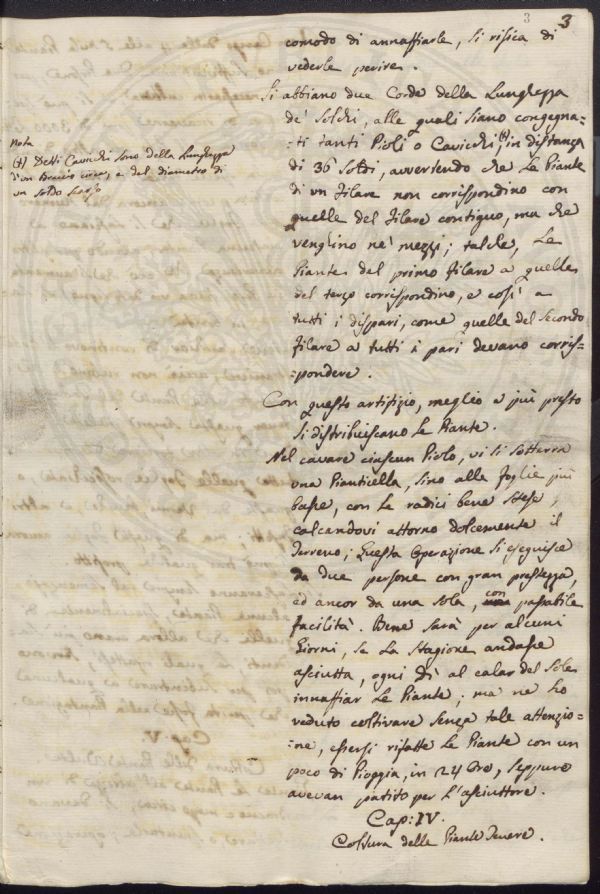 3 3
comodo di annaffiarle, si risica di
vederle perire.
Si abbiano due Corde della Lunghezza
de' Solchi, alle quali siano congegna=
=ti tanti Pioli o Cavicchi (+), in distanza
di 36 Soldi, avvertendo che Le Piante
di un filare non corrispondino con
quelle del filare contiguo, ma che
venghino ne' mezzi; talche, Le
Piante del primo filare a quelle
del terzo corrispondino, e così a
tutti i dispari, come quelle del Secondo
filare a tutti i pari devano corris=
=pondere.
Con questo artifizio, meglio e più presto
si distribuiscano Le Piante.
Nel cavare ciascun Piolo, vi si sotterra
una Pianticella, sino alle foglie più
basse, con Le radici bene stese,
calcandovi attorno dolcemente il
Terreno; Questa Operazione si eseguisce
da due persone con gran prestezza,
ed ancor da una sola, con passabile
facilità. Bene sarà per alcuni
Giorni, se La Stagione andasse
asciutta, ogni dì al calar del Sole
innaffiar Le Piante; ma ne ho
veduto coltivare senza tale attenzio=
=ne, essersi rifatte Le Piante con un
poco di Pioggia, in 24 Ore, seppure
avevan patito per L'asciuttore.
Cap: IV.
Coltura delle Piante Tenere.
Nota
(+) Detti Cavicchi sono della Lunghezza
d'un Braccio circa, e del diametro di
un soldo Largo